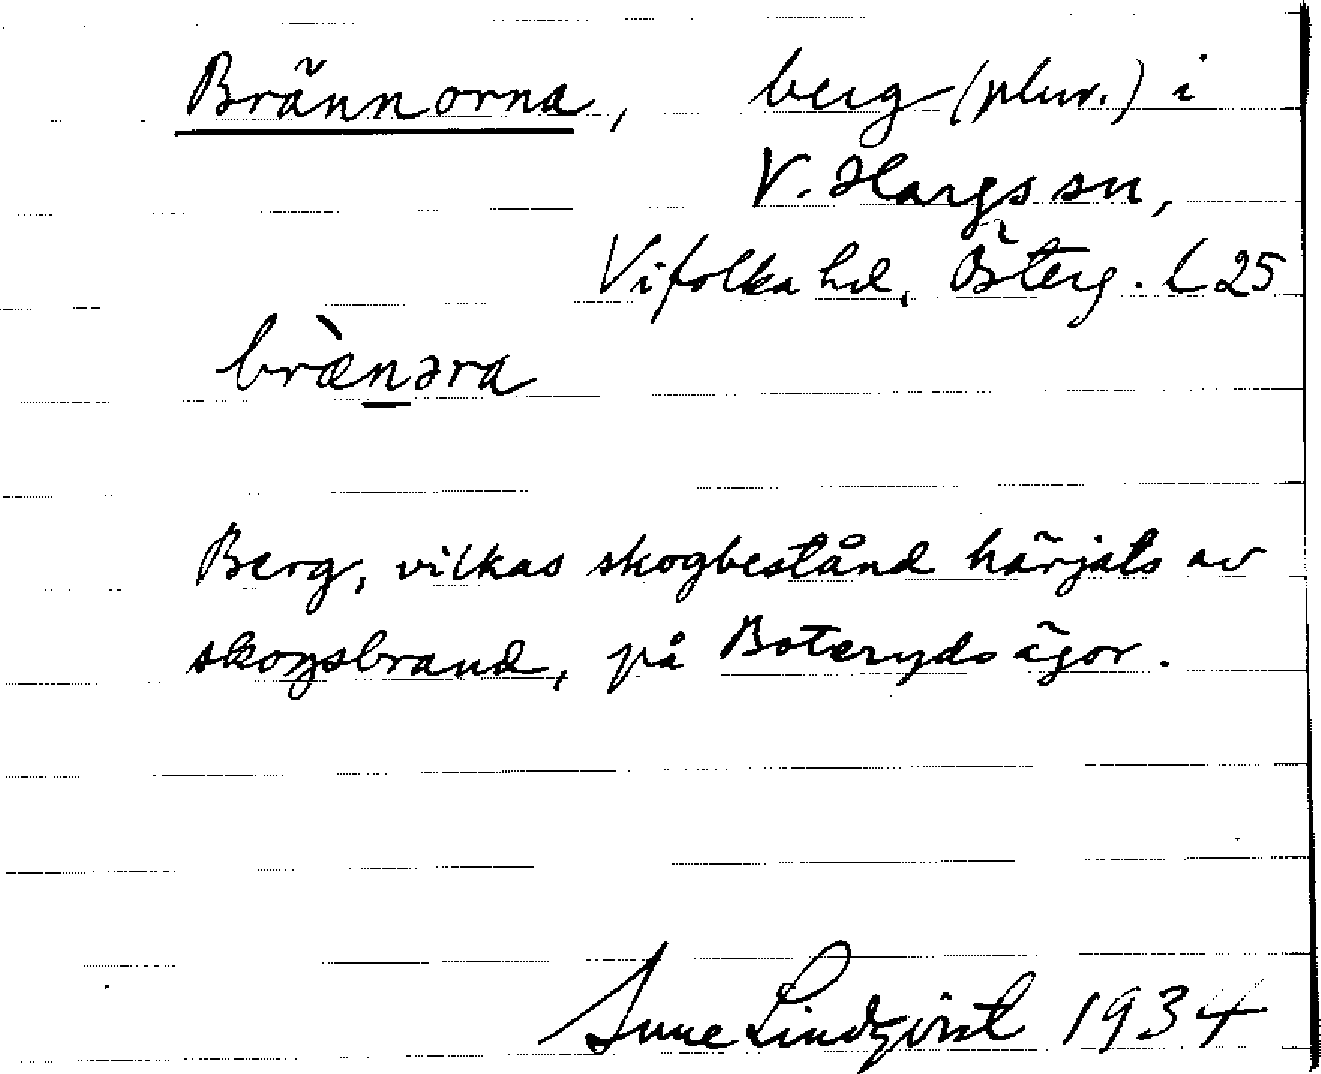 Brännorna, berg (plur.) i
V. Hargs sn,
Vifolka hd, Österg. L 25
brænəra
Berg, vilkas skogbestånd härjats av
skogsbrand, på Boteryds ägor.
Sune Lindqvist 1934